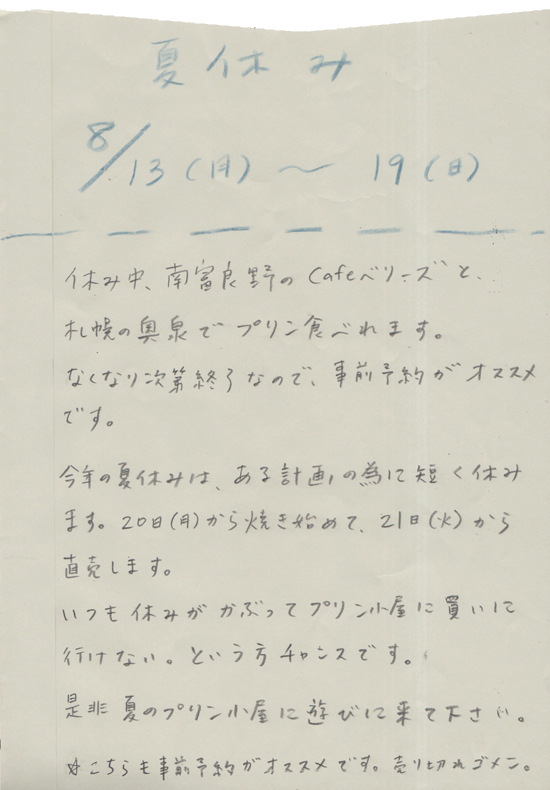 夏休み
8/13(月)〜19(日)
休み中、南富良野のCafeベリーズと、
札幌の奥泉でプリン食べれます。
なくなり次第終了なので、事前予約がオススメ
です。
今年の夏休みは、ある計画の為に短く休み
ます。20日(月)から焼き始めて、21日(火)から
直売します。
いつも休みがかぶってプリン小屋に買いに
行けない。という方チャンスです。
是非夏のプリン小屋に遊びに来て下さい。
☆こちらも事前予約がオススメです。売り切れゴメン。